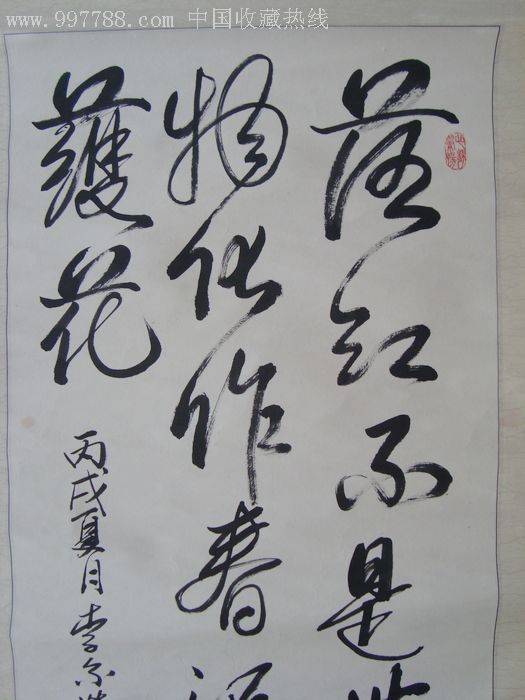 www.997788.com 中国收藏热线
落红不是
物化作春
護花
丙戌夏月李尔